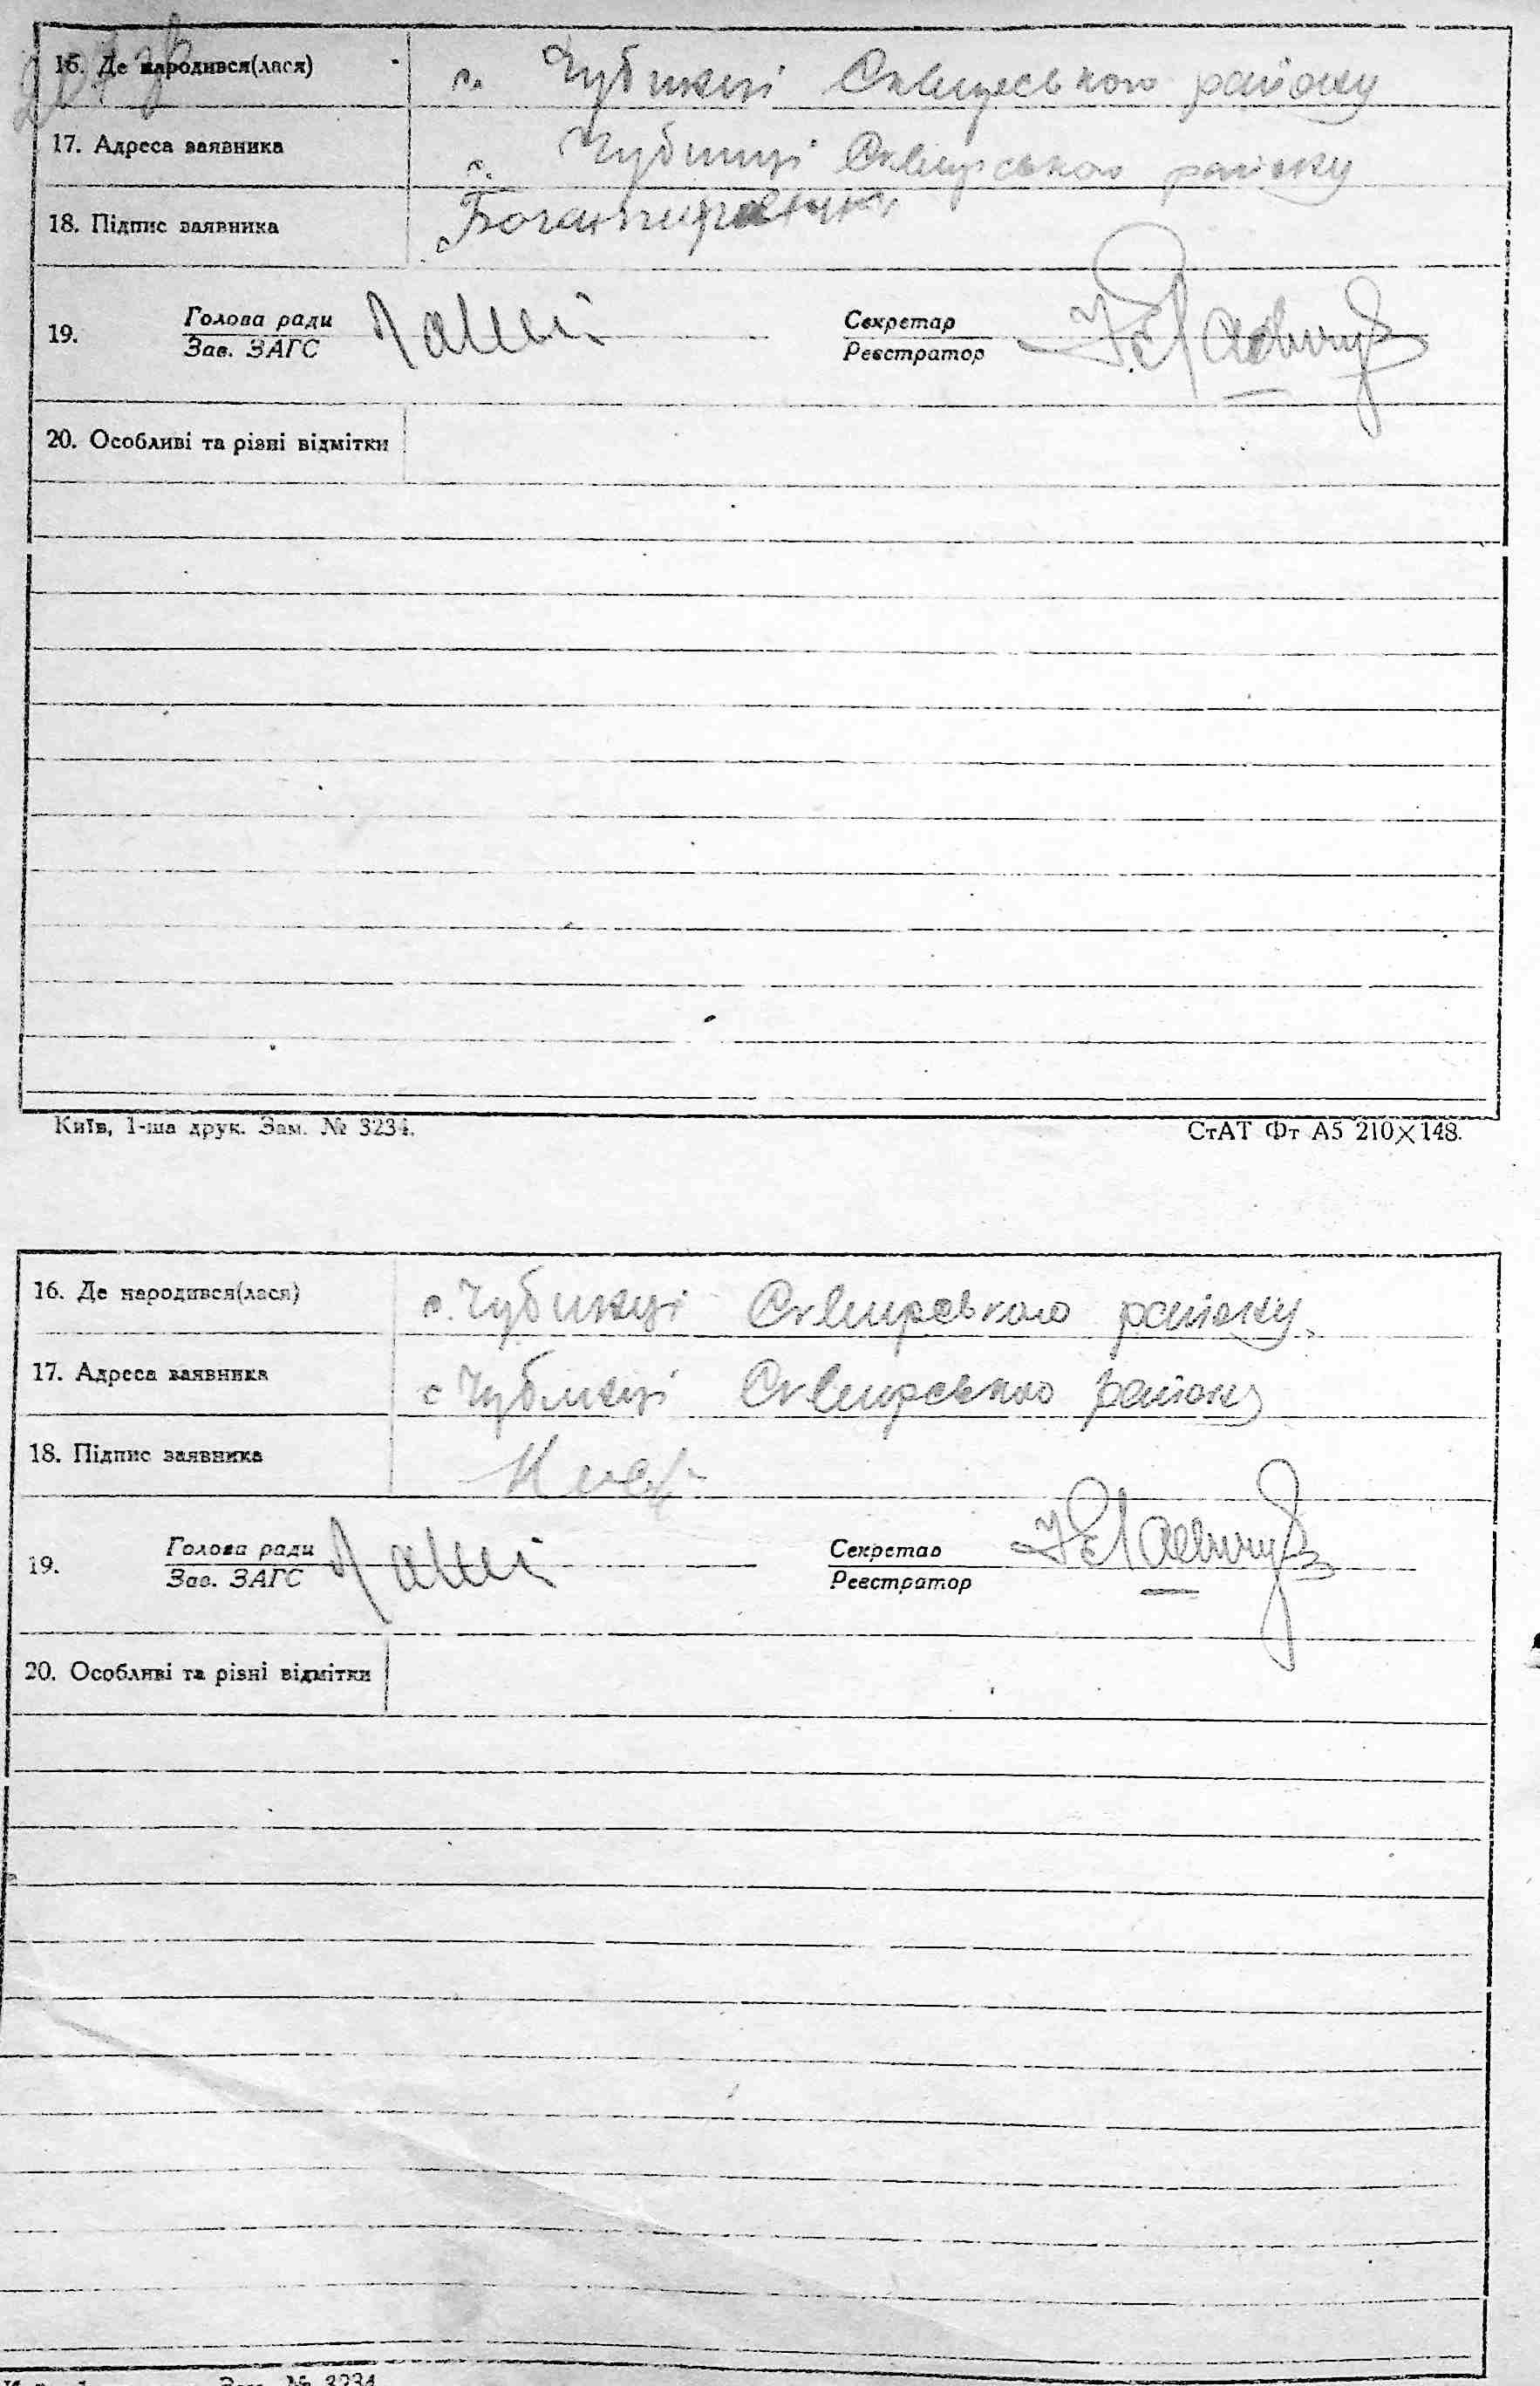 16. Де народився(лася) с. Чубинці Сквирського району
17. Адреса заявника с. Чубинці Сквирського району
18. Підпис заявника
19. Голова ради Секретар
Зав. ЗАГС Реєстратор
20. Особливі та різні відмітки
Київ, 1-ша друк. Зам. № 3234. СтАТ Фт А5 210×148.
16. Де народився(лася) с. Чубинці Сквирського району
17. Адреса заявника с Чубинці Сквирського району
18. Підпис заявника
19. Голова ради Секретар
Зав. ЗАГС Реєстратор
20. Особливі та різні відмітки
Зам. № 3234